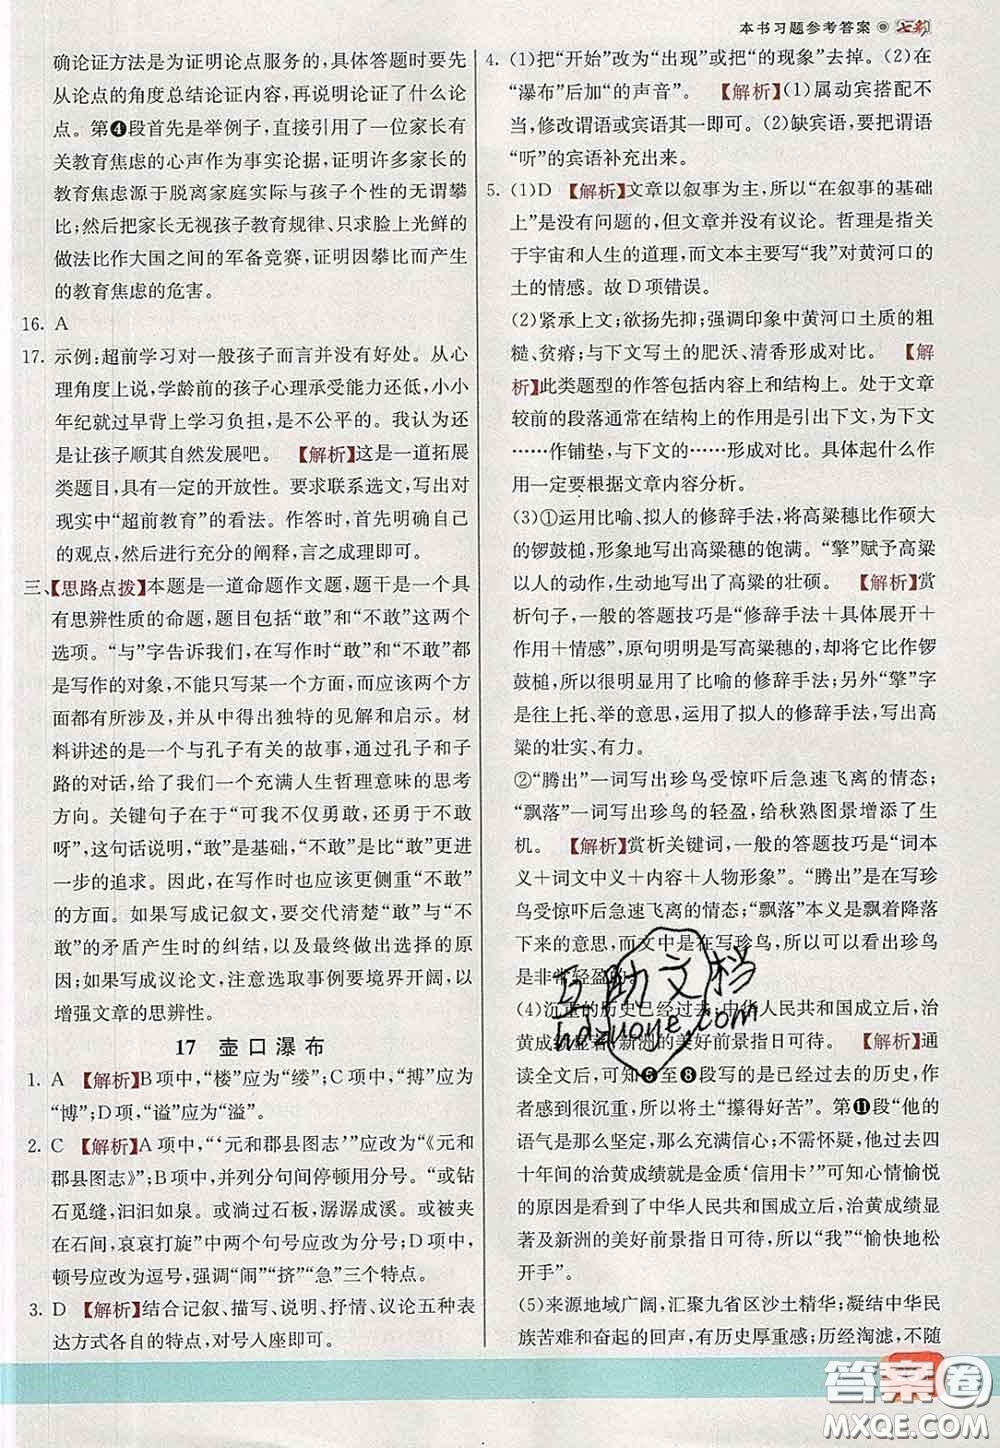 本书习题参考答案
确论证方法是为证明论点服务的，具体答题时要先
从论点的角度总结论证内容，再说明论证了什么论
点。第❹段首先是举例子，直接引用了一位家长有
关教育焦虑的心声作为事实论据，证明许多家长的
教育焦虑源于脱离家庭实际与孩子个性的无谓攀
比；然后把家长无视孩子教育规律、只求脸上光鲜的
做法比作大国之间的军备竞赛，证明因攀比而产生
的教育焦虑的危害。
16. A
17. 示例：超前学习对一般孩子而言并没有好处。从心
理角度上说，学龄前的孩子心理承受能力还低，小小
年纪就过早背上学习负担，是不公平的。我认为还
是让孩子顺其自然发展吧。【解析】这是一道拓展
类题目，具有一定的开放性。要求联系选文，写出对
现实中“超前教育”的看法。作答时，首先明确自己
的观点，然后进行充分的阐释，言之成理即可。
三、【思路点拨】本题是一道命题作文题，题干是一个具
有思辨性质的命题，出现了“敢”和“不敢”这两个
选项。“与”字告诉我们，在写作时“敢”和“不敢”都
是写作的对象，不能只写某一个方面，而应该两个方
面都有所涉及，并从中得出独特的见解和启示。材
料讲述的是一个与孔子有关的故事，通过孔子和子
路的对话，给了我们一个充满人生哲理意味的思考
方向。关键句子在于“可我不仅勇敢，还要不敢
呀”，这句话说明，“敢”是基础，“不敢”是比“敢”更
进一步的追求。因此，在写作时也应该更侧重“不敢”的
内容。如果写成记叙文，要交代清楚“敢”与“不
敢”的矛盾产生时的纠结，以及最终做出选择的原
因；如果写成议论文，注意选取事例要境界开阔，以
增强文章的思辨性。
17 壶口瀑布
1. A 【解析】B项中，“偻”应为“缕”；C项中，“搏”应为
“博”；D项，“谥”应为“溢”。
2. C 【解析】A项中，“‘元和郡县图志’”应改为“《元和
郡县图志》”；B项中，并列分句间停顿用分号。“或钻
石觅缝，汩汩如泉。或淌过石板，潺潺成溪。或被夹
在石间，哀哀打旋”中两个句号应改为分号；D项中，
顿号应改为逗号，强调“闹”“挤”“急”三个特点。
3. D 【解析】结合记叙、描写、说明、抒情、议论五种表
达方式各自的特点，对号入座即可。
4. (1)把“开始”改为“出现”或把“的现象”去掉。(2)在
“瀑布”后加“的声音”。【解析】(1)属动宾搭配不
当，修改谓语或宾语其一即可。(2)缺宾语，要把谓语
“听”的宾语补充出来。
5. (1)D 【解析】文章以叙事为主，所以“在叙事的基础
上”是没有问题的，但文章并没有议论。哲理是指关
于宇宙和人生的道理，而文本主要写“我”对黄河口
的土的情感。故D项错误。
(2)紧承上文；欲扬先抑；强调印象中黄河口土质的粗
糙、贫瘠；与下文写土的肥沃、清香形成对比。【解
析】此类题型的作答包括内容上和结构上。处于文章
较前的段落通常在结构上的作用是引出下文，为下文
……作铺垫，与下文的……形成对比。具体起什么作
用一定要根据文章内容分析。
(3)①运用比喻、拟人的修辞手法，将高粱穗比作硕大
的锣鼓槌，形象地写出了高粱穗的饱满。“擎”赋予高粱
以人的动作，生动地写出了高粱的壮硕。【解析】赏
析句子，一般的答题技巧是“修辞手法＋表达效果＋
作用＋情感”，原句明明是写高粱穗，却将它比作锣
鼓槌，所以很明显用了比喻的修辞手法；另外“擎”字
是往上托、举的意思，运用了拟人的修辞手法，写出了高
粱的壮实、有力。
②“腾出”一词写出珍鸟受惊吓后急速飞离的情态；
“飘落”一词写出珍鸟的轻盈，给秋熟图景增添了生
机。【解析】赏析关键词，一般的答题技巧是“词本
义＋词文中义＋内容＋人物形象”。“腾出”在写珍
鸟受惊吓后急速飞离的情态；“飘落”本义是飘着降落
下来的意思，而文中是在写珍鸟，所以可以看出珍鸟
是非常轻盈的。
(4)沉重的历史已经过去；中华人民共和国成立后，治
黄成绩显著；新洲的美好前景指日可待。【解析】通
读全文后，可知❺至❽段写的是已经过去的历史，作
者感到很沉重，所以将土“攥得好苦”。第⓫段“他的
语气是那么坚定，那么充满信心；不需怀疑，过去四
十年间的治黄成绩就是金质‘信用卡’”可知心情愉悦
的原因是看到了中华人民共和国成立后，治黄成绩显
著及新洲的美好前景指日可待，所以“我”“愉快地松
开手”。
(5)来源地域广阔，汇聚九省区沙土精华；凝结中华民
族苦难和奋起的回声，有历史厚重感；历经淘漉，不随
互助文档
hdzuoye.com
答案圈
MXQE.COM